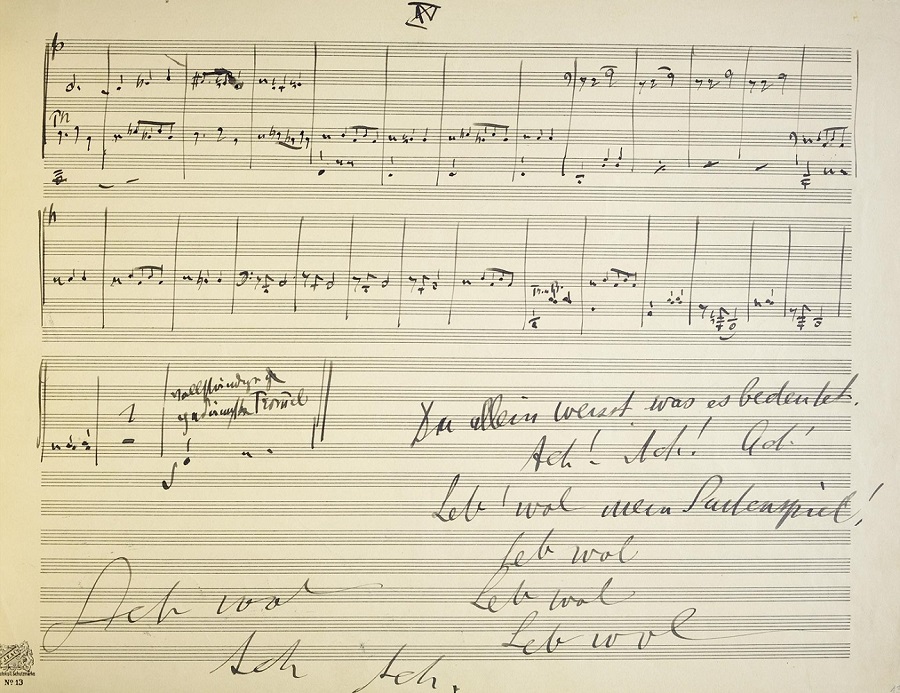 IV
vollständig
gedämpfte Trommel
Du allein weisst was es bedeutet.
Ach! Ach! Ach!
Leb' wol mein Saitenspiel!
Leb wol
Leb wol
Leb wol
Leb wol
Ach Ach.
No 13